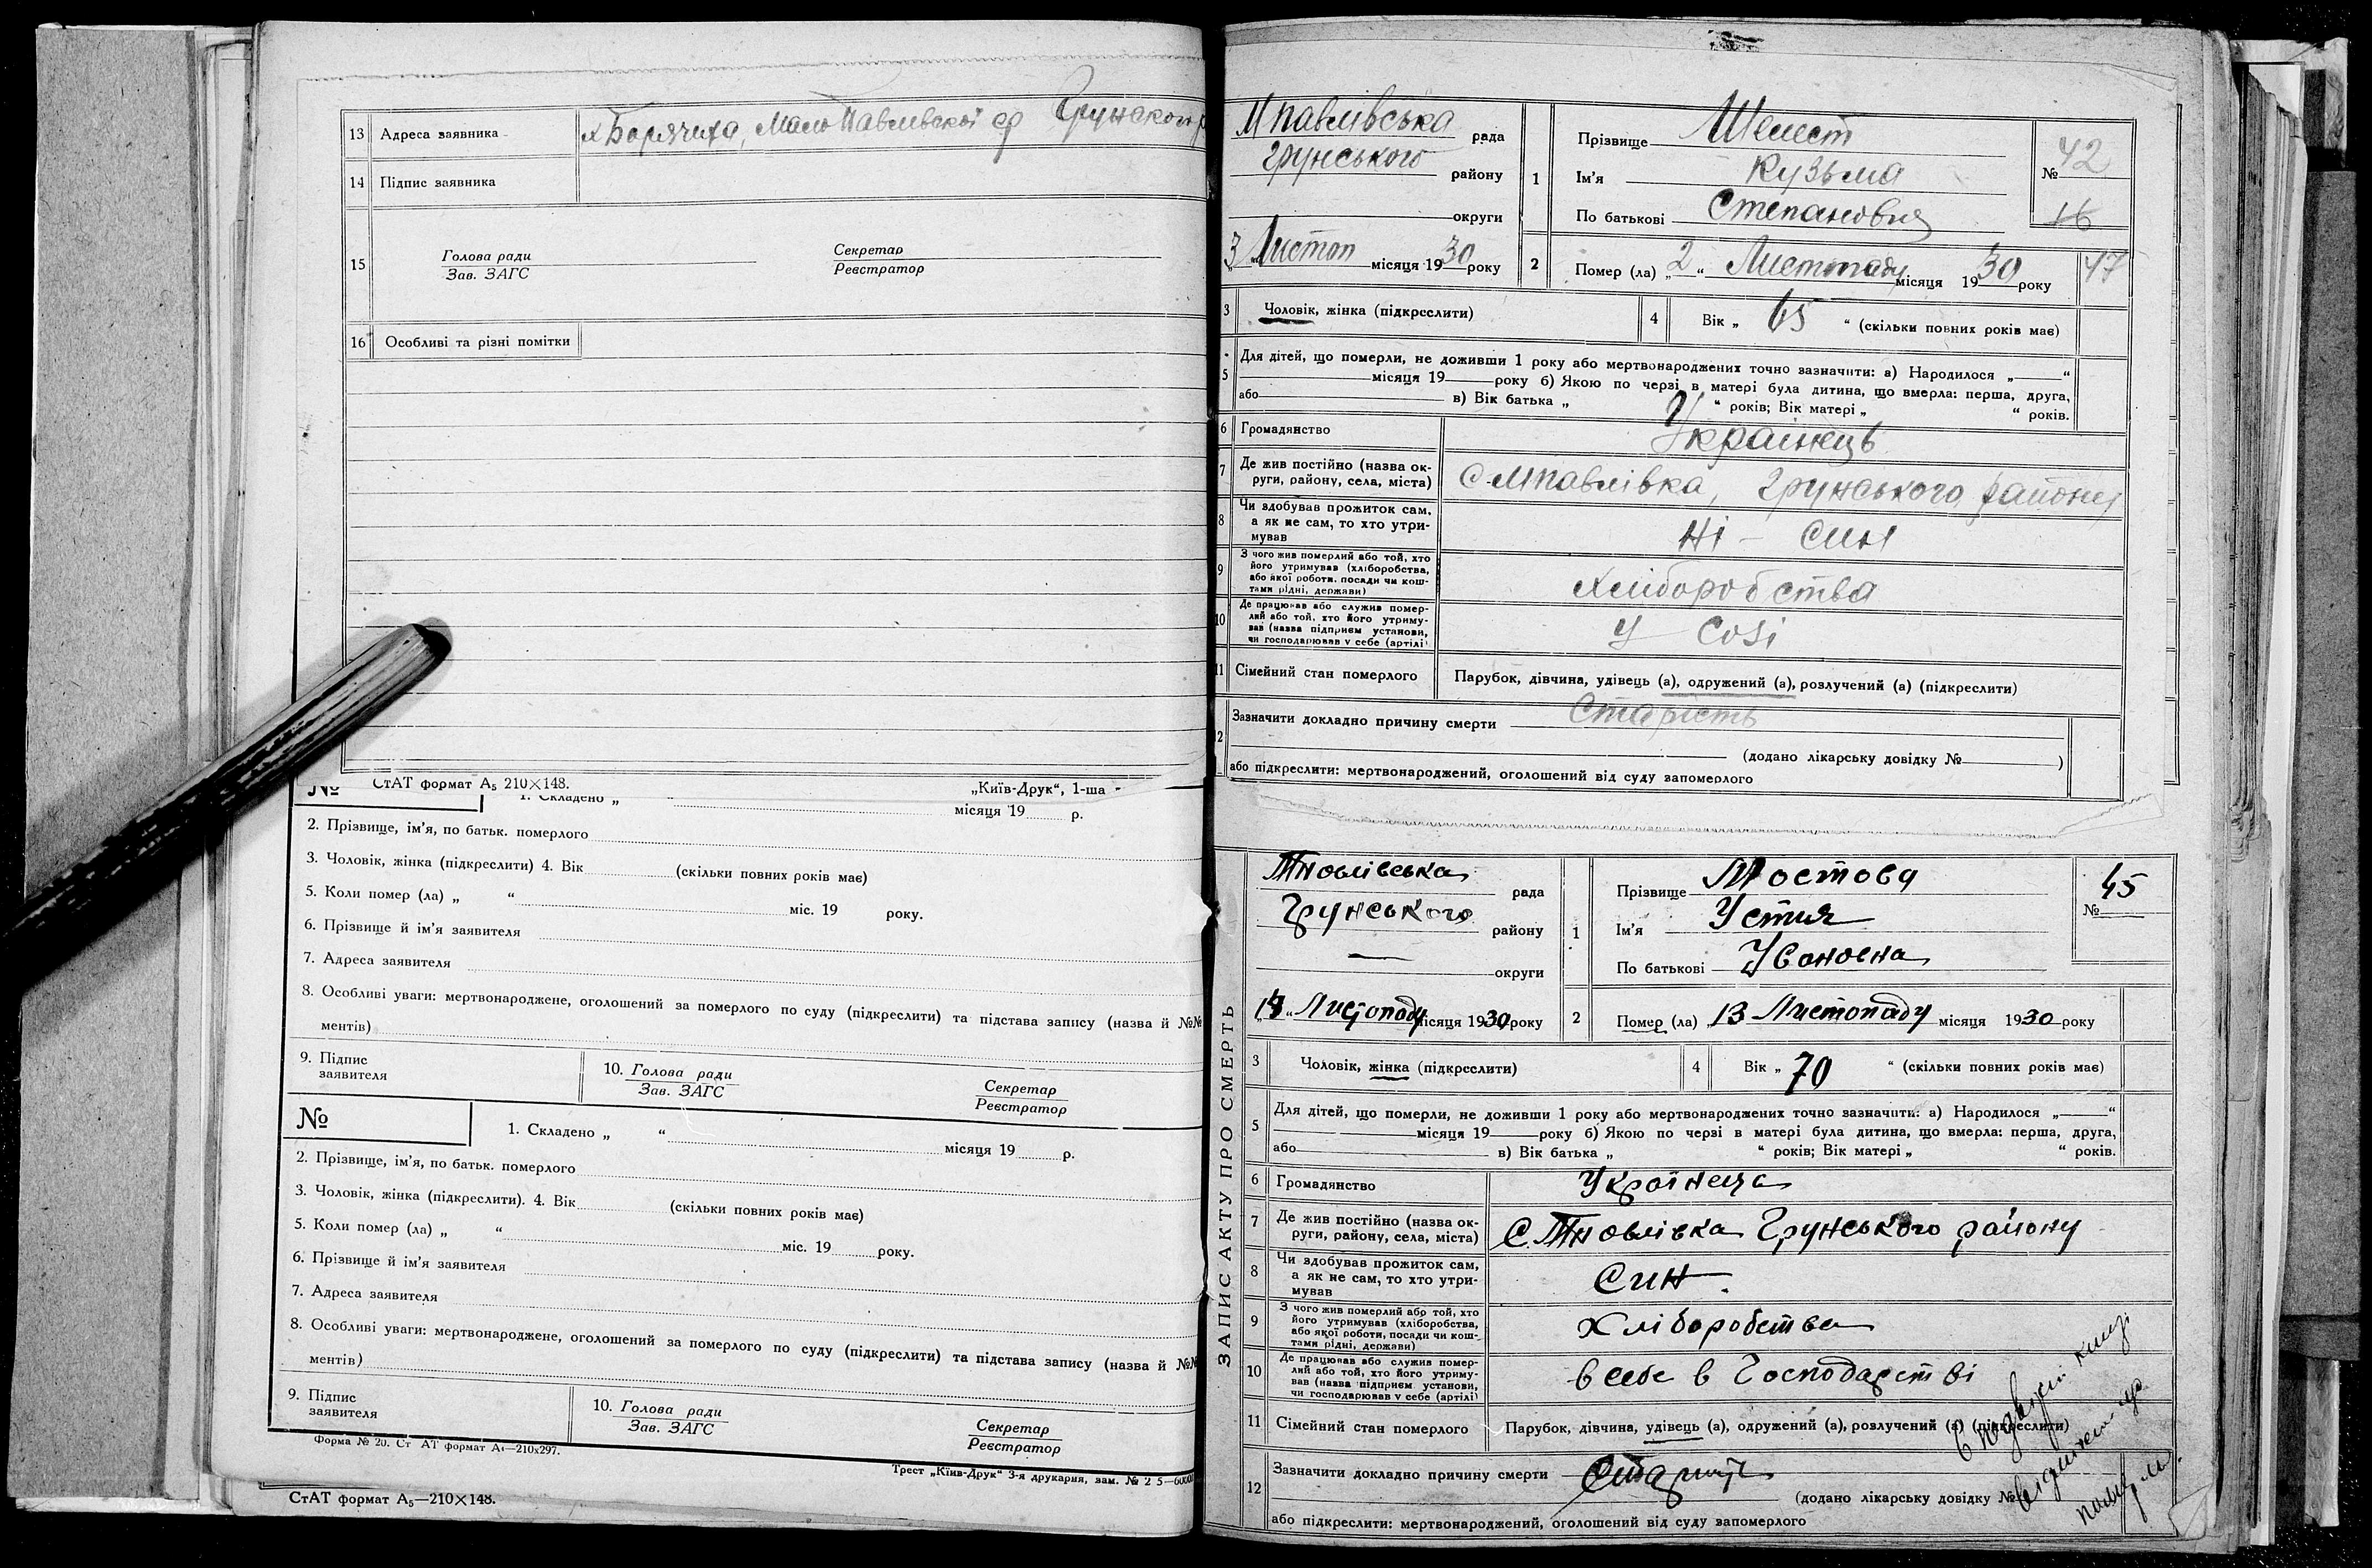 13 Адреса заявника х Борячиха, Мало Павлівської с/р Грунського р
14 Підпис заявника
15 Голова ради
Зав. ЗАГС
Секретар
Реєстратор
16 Особливі та різні помітки
СтАТ формат А5 210×148.
„Київ-Друк“, 1-ша
№
1. Складено „ “ місяця 19 р.
2. Прізвище, ім'я, по батьк. померлого
3. Чоловік, жінка (підкреслити) 4. Вік (скільки повних років має)
5. Коли помер (ла) „ “ міс. 19 року.
6. Прізвище й ім'я заявителя
7. Адреса заявителя
8. Особливі уваги: мертвонароджене, оголошений за померлого по суду (підкреслити) та підстава запису (назва й №№
ментів)
9. Підпис
заявителя
10. Голова ради
Зав. ЗАГС
Секретар
Реєстратор
№
1. Складено „ “ місяця 19 р.
2. Прізвище, ім'я, по батьк. померлого
3. Чоловік, жінка (підкреслити). 4. Вік (скільки повних років має)
5. Коли помер (ла) „ “ міс. 19 року.
6. Прізвище й ім'я заявителя
7. Адреса заявителя
8. Особливі уваги: мертвонароджене, оголошений за померлого по суду (підкреслити) та підстава запису (назва й №№
ментів)
9. Підпис
заявителя
10. Голова ради
Зав. ЗАГС
Секретар
Реєстратор
Форма № 20. Ст АТ формат А4—210×297.
Трест „Київ-Друк“ 3-я друкарня, зам. №
СтАТ формат А5—210×148.
МПавлівська рада
Грунського району
округи
„3“ Листоп місяця 1930 року
1 Прізвище Шелест
Ім'я Кузьма
По батькові Степанович
№ 42
16
2 Помер (ла) „2“ Листопаду місяця 1930 року
47
3 Чоловік, жінка (підкреслити)
4 Вік „ 65 “ (скільки повних років має)
5 Для дітей, що померли, не доживши 1 року або мертвонароджених точно зазначити: а) Народилося „ “
місяця 19 року б) Якою по черзі в матері була дитина, що вмерла: перша, друга,
або в) Вік батька „ “ років; Вік матері „ “ років.
6 Громадянство Українець
7 Де жив постійно (назва ок-
руги, району, села, міста) С-МПавлівка, Грунського району
8 Чи здобував прожиток сам,
а як не сам, то хто утри-
мував Ні — син
9 З чого жив померлий або той, хто
його утримував (хліборобства,
або якої роботи, посади чи кош-
тами рідні, держави) Хліборобства
10 Де працював або служив помер-
лий або той, хто його утриму-
вав (назва підприєм установи,
чи господарював у себе (артілі) У Созі
11 Сімейний стан померлого Парубок, дівчина, удівець (а), одружений (а), розлучений (а) (підкреслити)
12 Зазначити докладно причину смерти Старість
(додано лікарську довідку № )
або підкреслити: мертвонароджений, оголошений від суду запомерлого
ЗАПИС АКТУ ПРО СМЕРТЬ
рада
Грунського району
— округи
„14“ Листопаду місяця 1930 року
1 Прізвище Мостова
Ім'я Устия
По батькові Увановна
№ 45
2 Помер (ла) „13 Листопаду місяця 1930 року
3 Чоловік, жінка (підкреслити)
4 Вік „ 70 “ (скільки повних років має)
5 Для дітей, що померли, не доживши 1 року або мертвонароджених точно зазначити: а) Народилося „ “
місяця 19 року б) Якою по черзі в матері була дитина, що вмерла: перша, друга,
або в) Вік батька „ “ років; Вік матері „ “ років.
6 Громадянство Українеца
7 Де жив постійно (назва ок-
руги, району, села, міста) С. Грунського району
8 Чи здобував прожиток сам,
а як не сам, то хто утри-
мував Син.
9 З чого жив померлий або той, хто
його утримував (хліборобства,
або якої роботи, посади чи кош-
тами рідні, держави) Хліборобства
10 Де працював або служив помер-
лий або той, хто його утриму-
вав (назва підприєм установи,
чи господарював у себе (артілі) в себе в Господарстві
11 Сімейний стан померлого Парубок, дівчина, удівець (а), одружений (а), розлучений (а) (підкреслити)
12 Зазначити докладно причину смерти
(додано лікарську довідку №
або підкреслити: мертвонароджений, оголошений від суду запомерлого